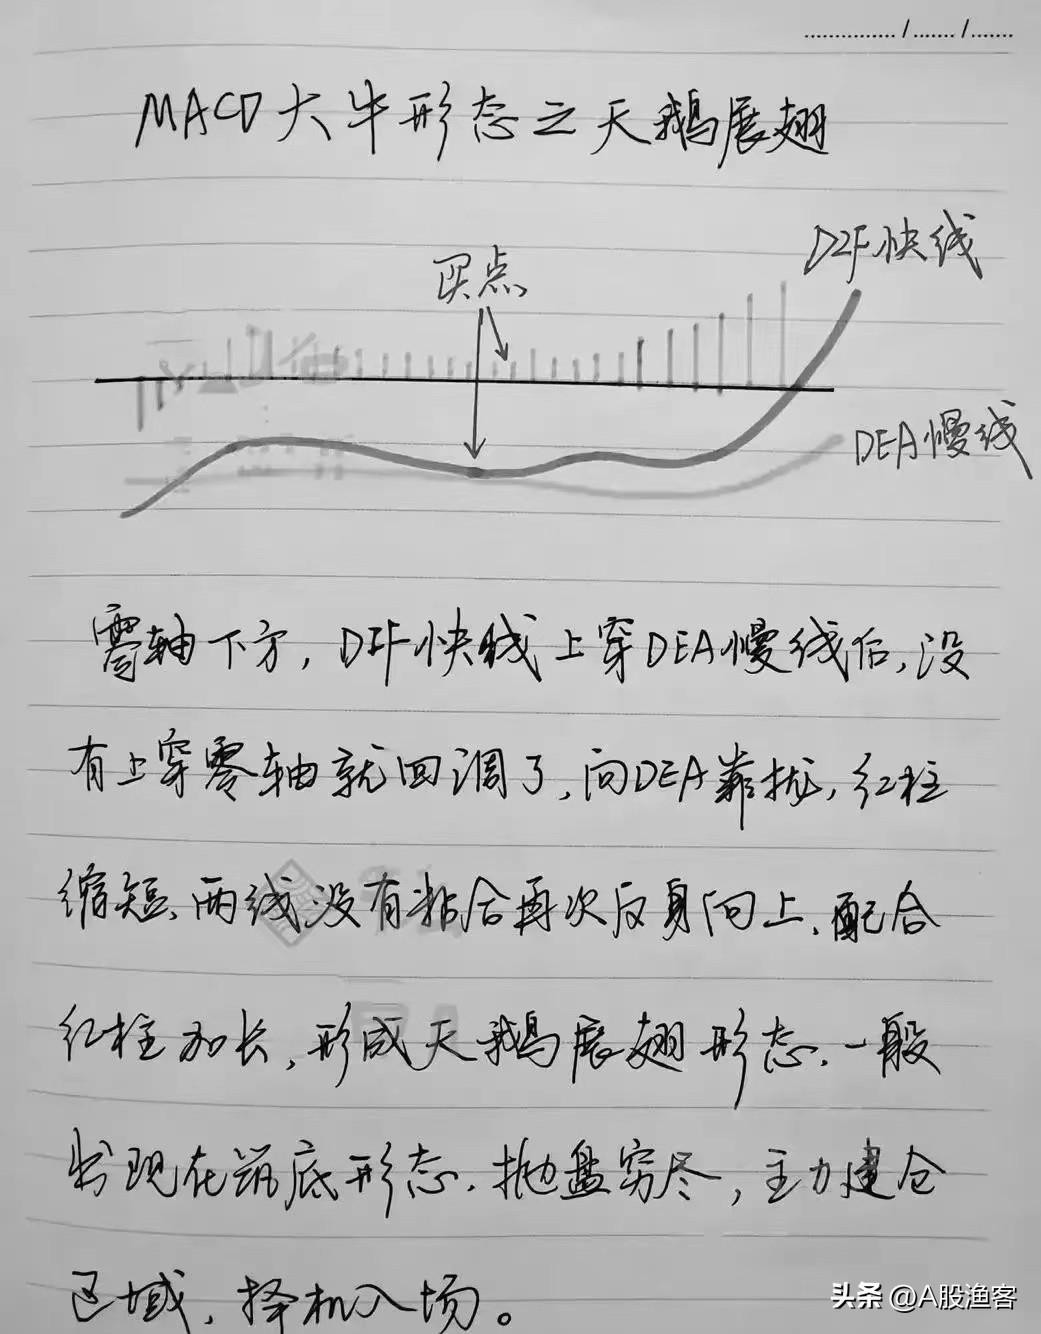 ............... / ....... / .......
MACD大牛形态之天鹅展翅
DIF快线
买点
DEA慢线
零轴下方，DIF快线上穿DEA慢线后，没
有上穿零轴就回调了，向DEA靠拢，红柱
缩短、两线没有粘合再次反身向上、配合
红柱加长，形成天鹅展翅形态，一般
出现在筑底形态，抛盘穷尽，主力建仓
区域，择机入场。
头条 @A股渔客